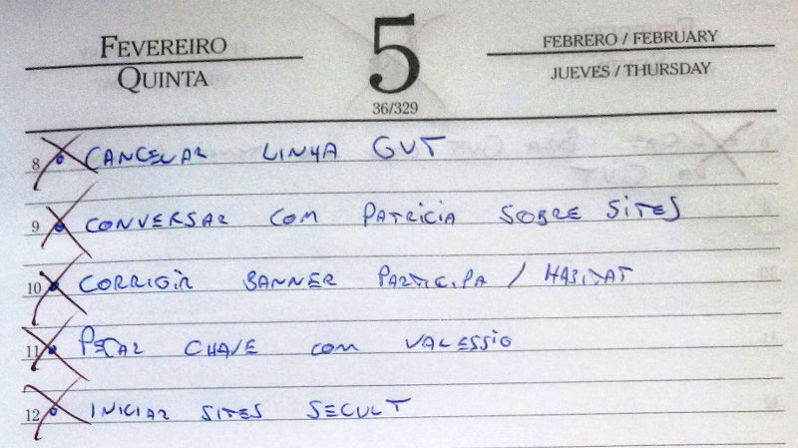 FEVEREIRO
QUINTA
5
36/329
FEBRERO / FEBRUARY
JUEVES / THURSDAY
8 CANCELAR LINHA GVT
9 CONVERSAR COM PATRICIA SOBRE SITES
10 CORRIGIR BANNER PARTICIPA / HABITAT
11 PEGAR CHAVE COM VALESSIO
12 INICIAR SITES SECULT